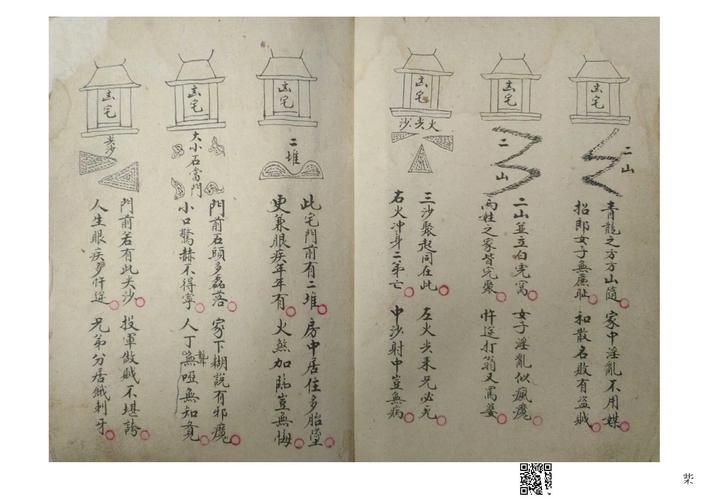 凶宅
二山
青龍之方方山隨 家中淫亂不用媒
招郎女子無廉耻 和散名敗有盜賊
凶宅
二山
二山並立白虎窩 女子淫亂似瘋魔
兩姓之家皆完聚 忤逆打翁又罵婆
凶宅
火尖沙
三沙聚起同在此 左火尖來兄必死
右火冲身二弟亡 中沙射中豈無病
凶宅
二堆
此宅門前有二堆 房中居住多胎墮
更兼眼疾年年有 火煞加臨豈無悔
凶宅
大小石當門
門前石頭多磊落 家下糊說有邪魔
小口驚赫不得寧 人丁聾啞無知
凶宅
尖沙
門前若有此尖沙 投軍做賊不堪誇
人生眼疾多忤逆 兄弟分居餓刺牙
柴